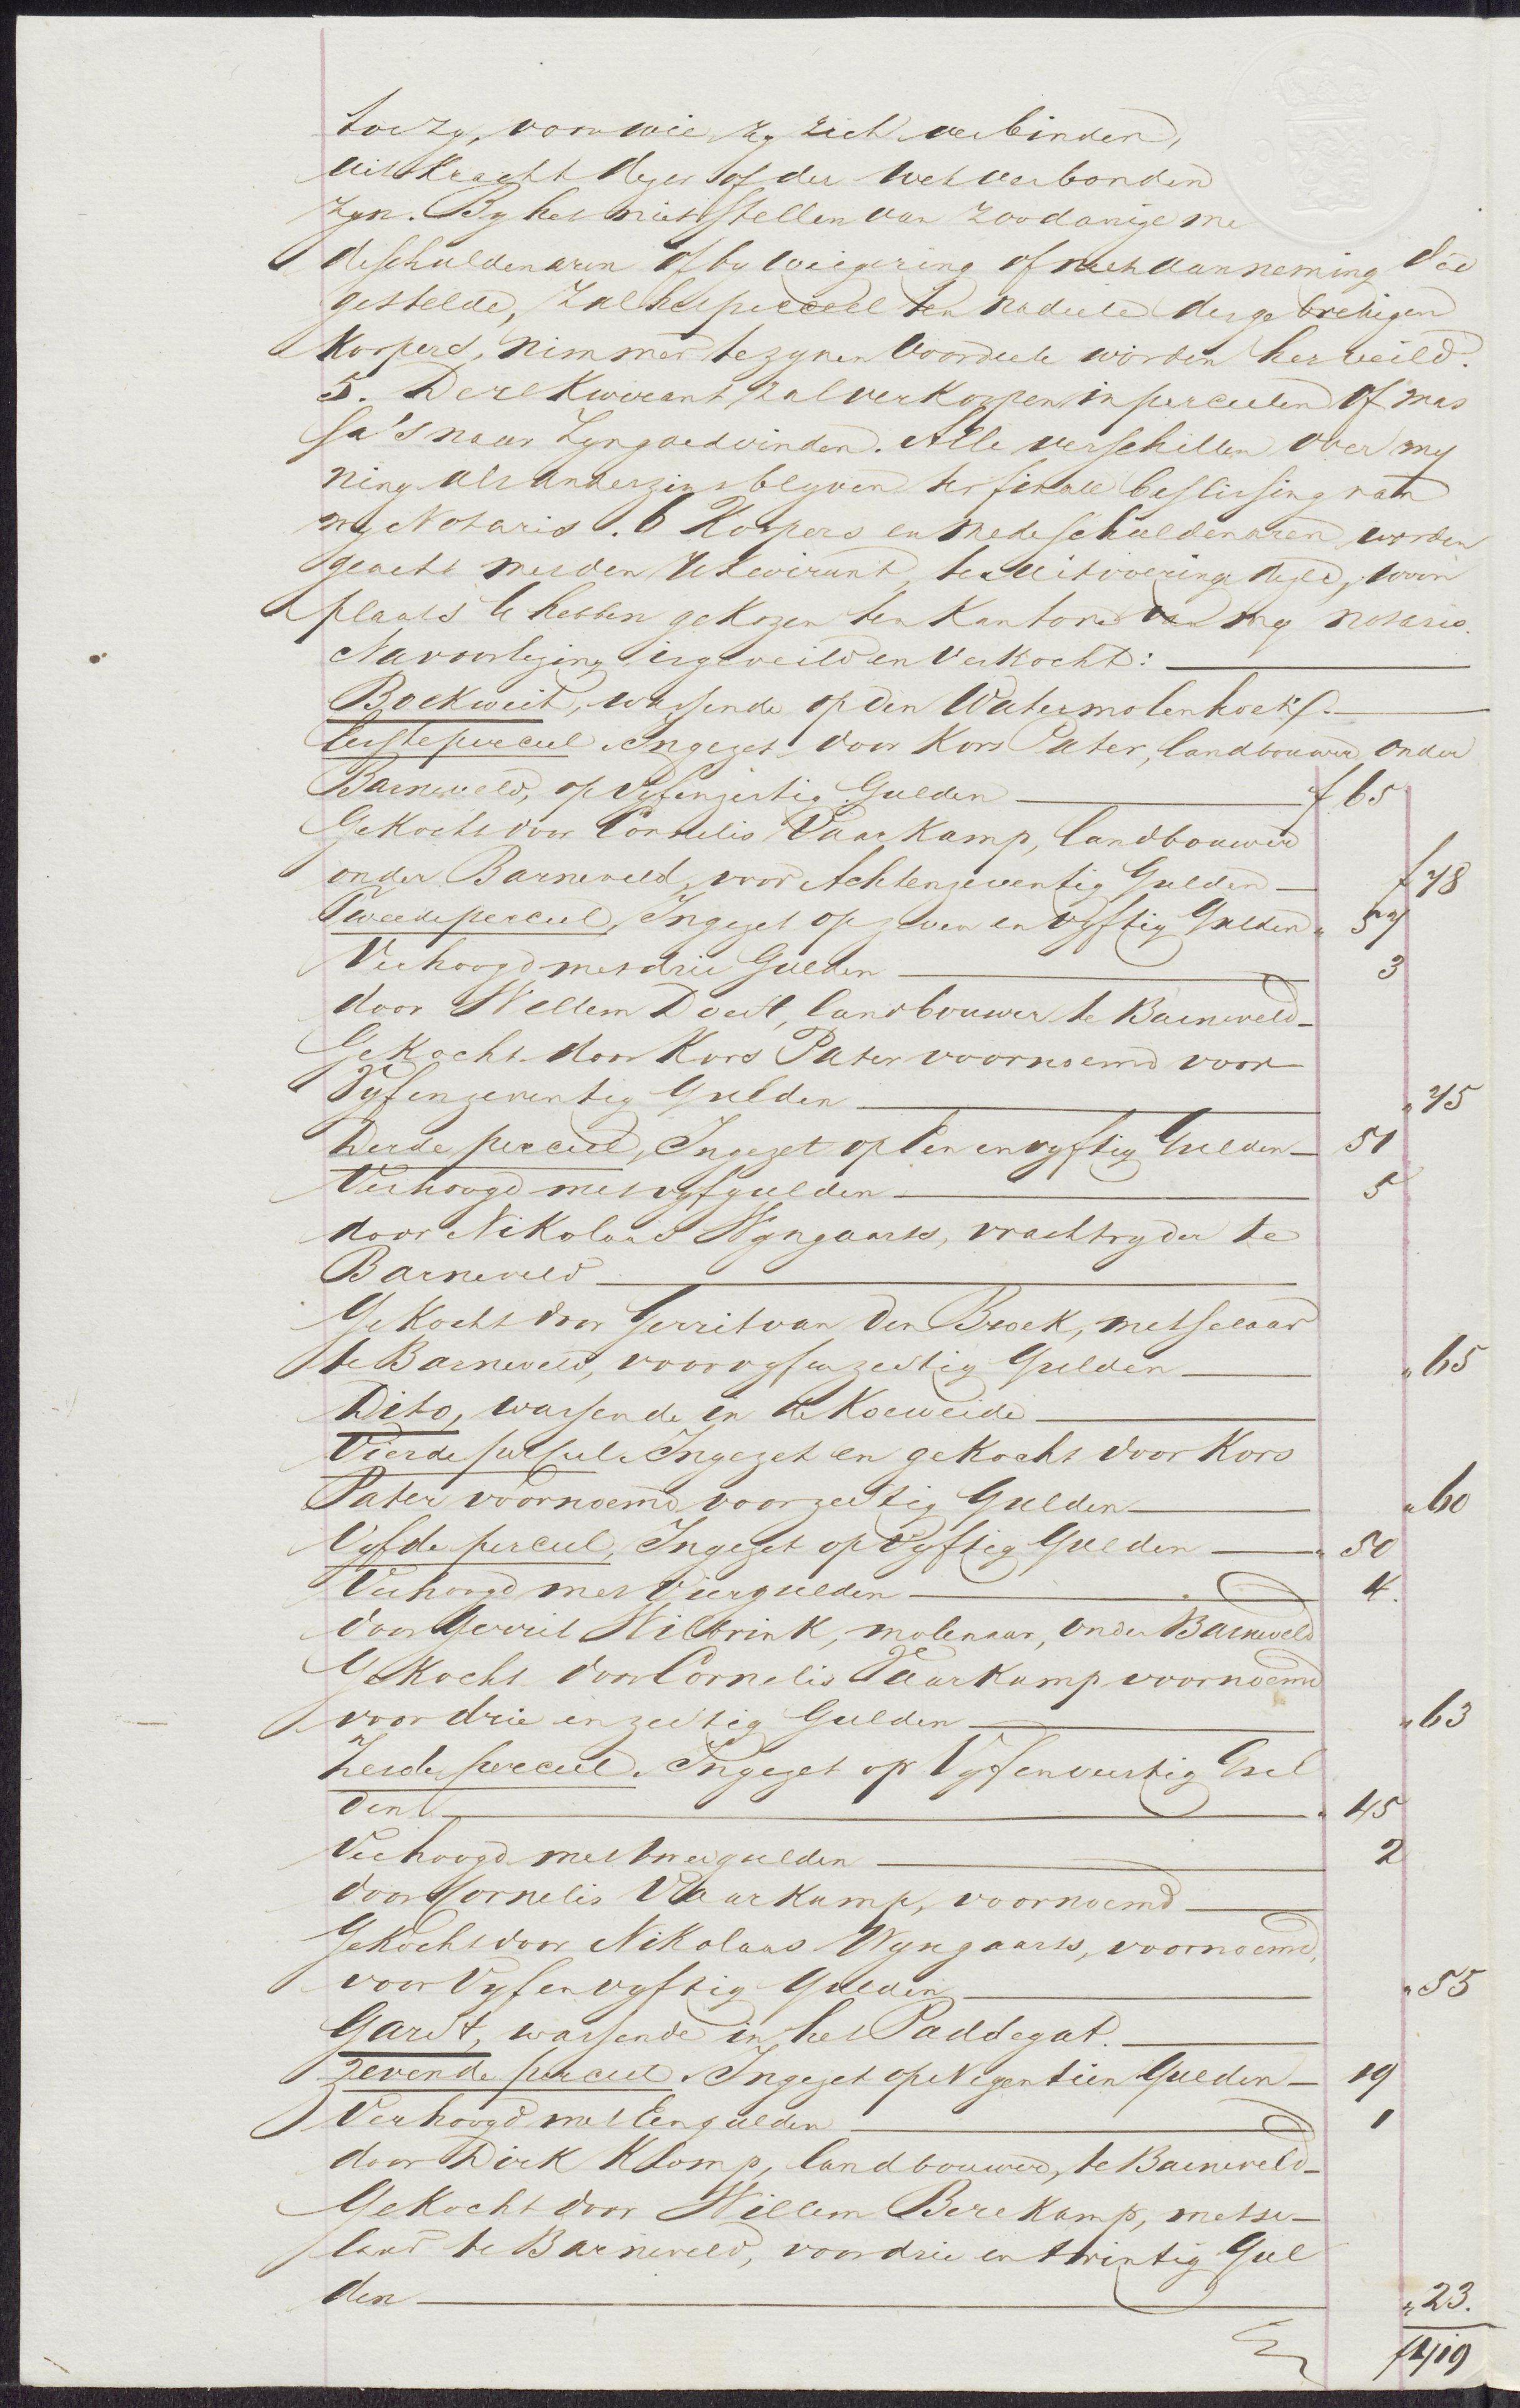 toe zy, voor wie zy zich verbinden,
uit kracht dezes of der wet verbonden
zyn. By het niet stellen van zoodanige me
deschuldenaren of by weigering of niet aanneming der
gestelde, zal het perceel ten nadeele des gebrekigen
koopers, nimmer te zynen voordeele worden herveild.
5. De rekwirant zal verkoopen in perceelen of mas
sa's naar zyn goedvinden. Alle verschillen over my
ning als anderzins blyven ter finale beslissing van
my Notaris. 6 Koopers en medeschuldenaren worden
geacht met den rekwirant, ter uitvoering dezes, woon
plaats te hebben gekozen ten kantore van my notaris.
Na voorlezing is geveild en verkocht:
Boekweit, wassende op den Watermolenhoek.
Eerste perceel. Ingezet door Kors Pater, landbouwer onder
Barneveld, op vyfenzestig Gulden f 65
Gekocht door Cornelis Vaarkamp, landbouwer
onder Barneveld, voor Achtenzeventig Gulden f 78
Tweede perceel, Ingezet op zeven en vyftig Gulden " 57
Verhoogd met drie Gulden 3
door Willem Doest, landbouwer te Barneveld
Gekocht door Kors Pater voornoemd voor
Vyfenzeventig Gulden " 75
Derde perceel, Ingezet op Een en vyftig Gulden 51
Verhoogd met vyf gulden 5
door Nikolaas Wyngaards, vrachtryder te
Barneveld
Gekocht door Gerrit van den Broek, metselaar
te Barneveld, voor vyfenzestig Gulden " 65
Dito, wassende in de Koeweide
Vierde perceel. Ingezet en gekocht door Kors
Pater voornoemd voor zestig Gulden " 60
Vyfde perceel, Ingezet op Vyftig Gulden " 50
Verhoogd met Vier gulden 4.
door Gerrit Wilbrink, molenaar, onder Barneveld
Gekocht door Cornelis Vaarkamp voornoemd
voor drie en zestig Gulden " 63
Zesde perceel. Ingezet op Vyfenveertig Gul
den " 45
Verhoogd met twee gulden 2
door Cornelis Vaarkamp, voornoemd
Gekocht door Nikolaas Wyngaards, voornoemd,
voor Vyfenvyftig Gulden " 55
Garst, wassende in het Paddegat.
Zevende perceel. Ingezet op Negentien Gulden 19
Verhoogd met Een gulden 1
door Dirk Klomp, landbouwer, te Barneveld
Gekocht door Willem Berekamp, metse-
laar te Barneveld, voor drie en twintig Gul
den " 23.
f 419